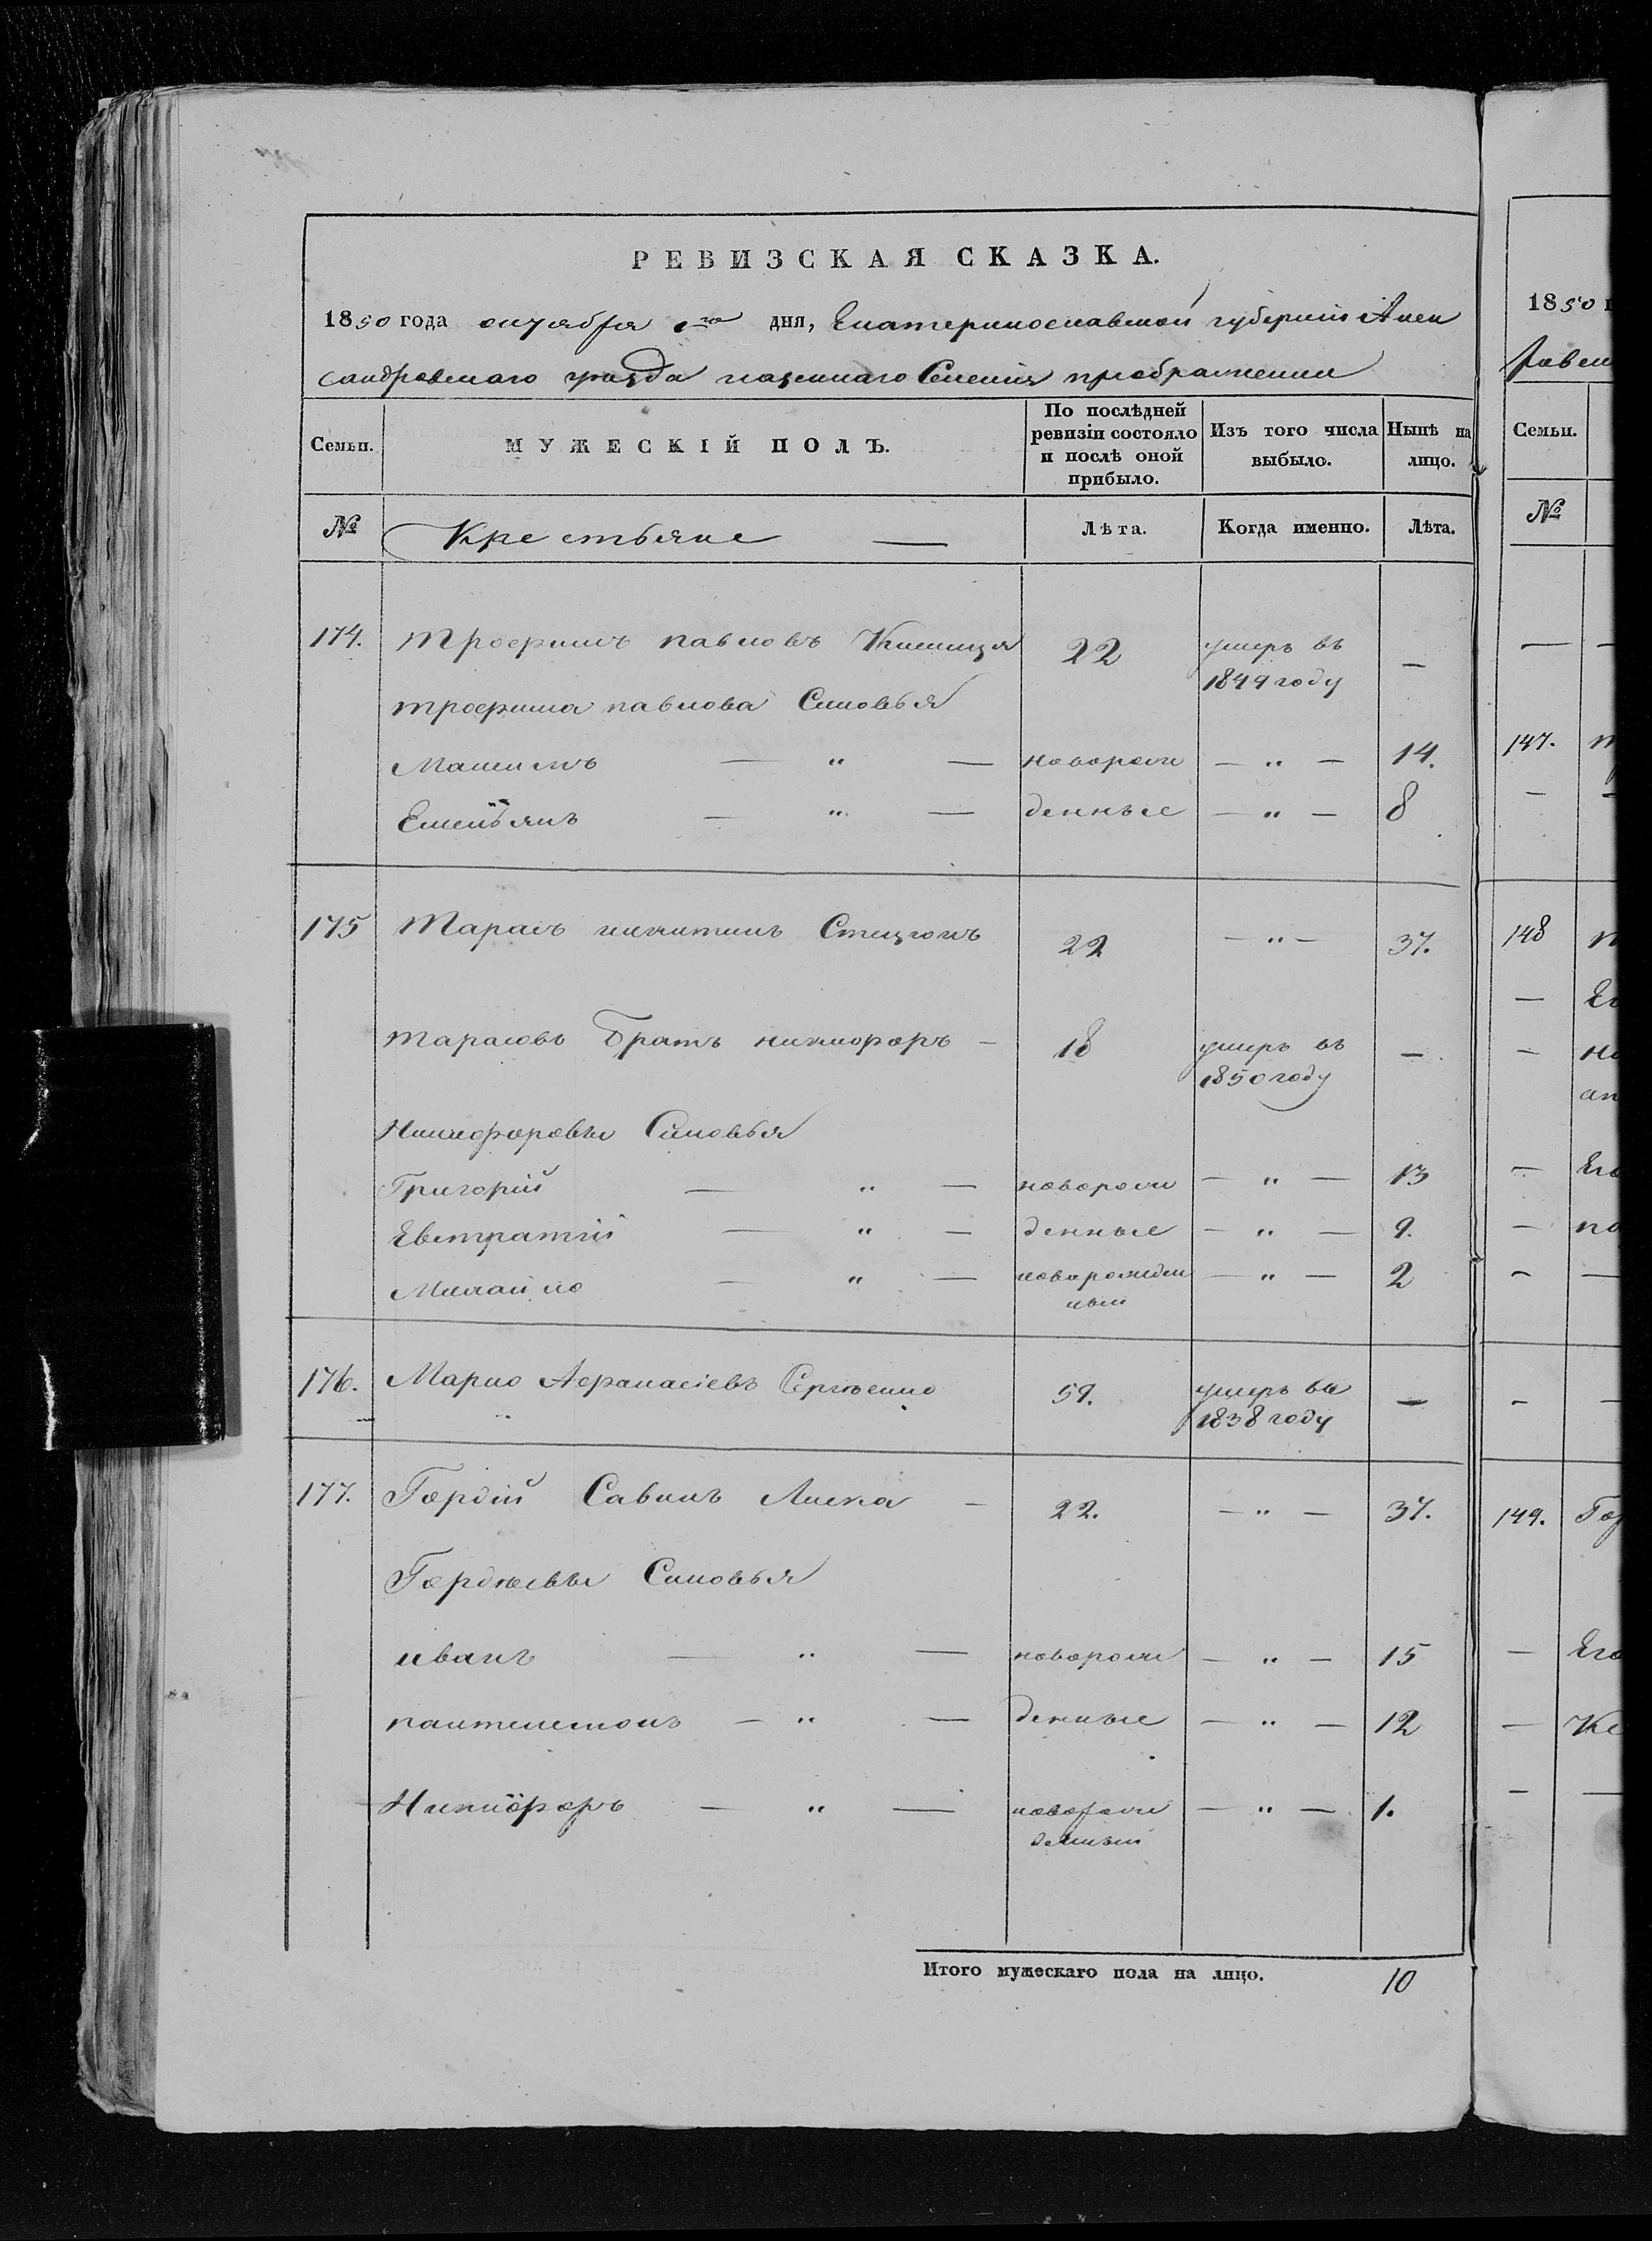 РЕВИЗСКАЯ СКАЗКА.
1850 года октября 1го дня, Екатеринославской губернии Алек
сандровскаго уезда казеннаго Селения преображенки
Семьи. МУЖЕСКІЙ ПОЛЪ. По послѣдней ревизіи состояло и послѣ оной прибыло. Изъ того числа выбыло. Нынѣ на лицо.
№ Крестьяне — Лѣта. Когда именно. Лѣта.
174. трофимъ павловъ 22 умеръ въ 1849 году —
трофима павлова Сыновья
Максимъ — " — новорож — " — 14.
Емельянъ — " — денные — " — 8
175 Тарасъ никитинъ 22 — " — 37.
тарасовъ Братъ никифоръ — 18 умеръ въ 1850 году —
Никифоровы Сыновья
Григорій — " — новорож — " — 13
Евстратій — " — денные — " — 9.
Михайло — " — новорожден ный — " — 2
176. Марко Афанасіевъ Сергѣенко 59. умеръ въ 1838 году —
177. Гордій Савинъ Лиска — 22. — " — 37.
Гордѣевы Сыновья
иванъ — " — новорож — " — 15
пантелемонъ — " — денные — " — 12
Никифоръ — " — новорож денный — " — 1.
Итого мужескаго пола на лицо. 10
1850 г
ровск
Семьи.
№
147.
148
149. Гор